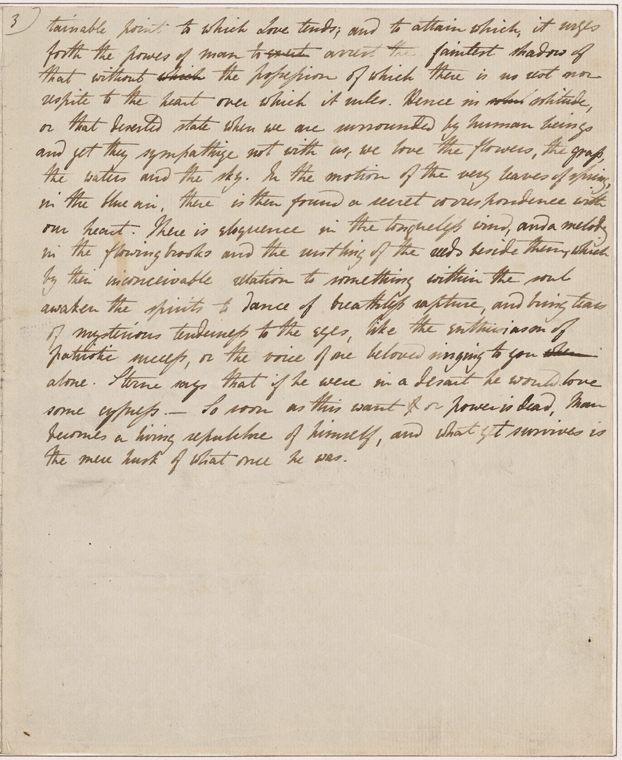 3)
tainable point to which Love tends; and to attain which, it urges
forth the powers of man to exert arrest the faintest shadow of
that without which the possession of which there is no rest nor
respite to the heart over which it rules. Hence in solitude,
or that deserted state when we are surrounded by human beings
and yet they sympathize not with us, we love the flowers, the grass,
the waters and the sky. In the motion of the very leaves of spring,
in the blue air, there is then found a secret correspondence with
our heart. There is eloquence in the tongueless wind, and a melody
in the flowing brooks and the rustling of the reeds beside them, which
by their inconceivable relation to something within the soul
awaken the spirits to dance of breathless rapture, and bring tears
of mysterious tenderness to the eyes, like the enthusiasm of
patriotic success, or the voice of one beloved singing to you when
alone. Sterne says that if he were in a desart he would love
some cypress. — So soon as this want or power is dead, Man
becomes a living sepulchre of himself, and what yet survives is
the mere husk of what once he was.